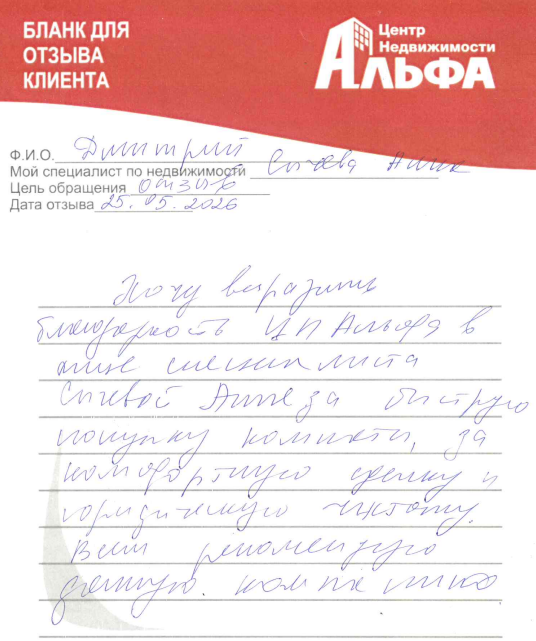 БЛАНК ДЛЯ
ОТЗЫВА
КЛИЕНТА
Центр
Недвижимости
АЛЬФА
Ф.И.О. Дмитрий
Мой специалист по недвижимости Сычева Анна
Цель обращения отзыв
Дата отзыва 25.05.2026
Хочу выразить
благодарность ЦН Альфа в
лице специалиста
Сычевой Анне за быструю
покупку комнаты, за
комфортную сделку и
юридическую чистоту.
Всем рекомендую
данную компанию